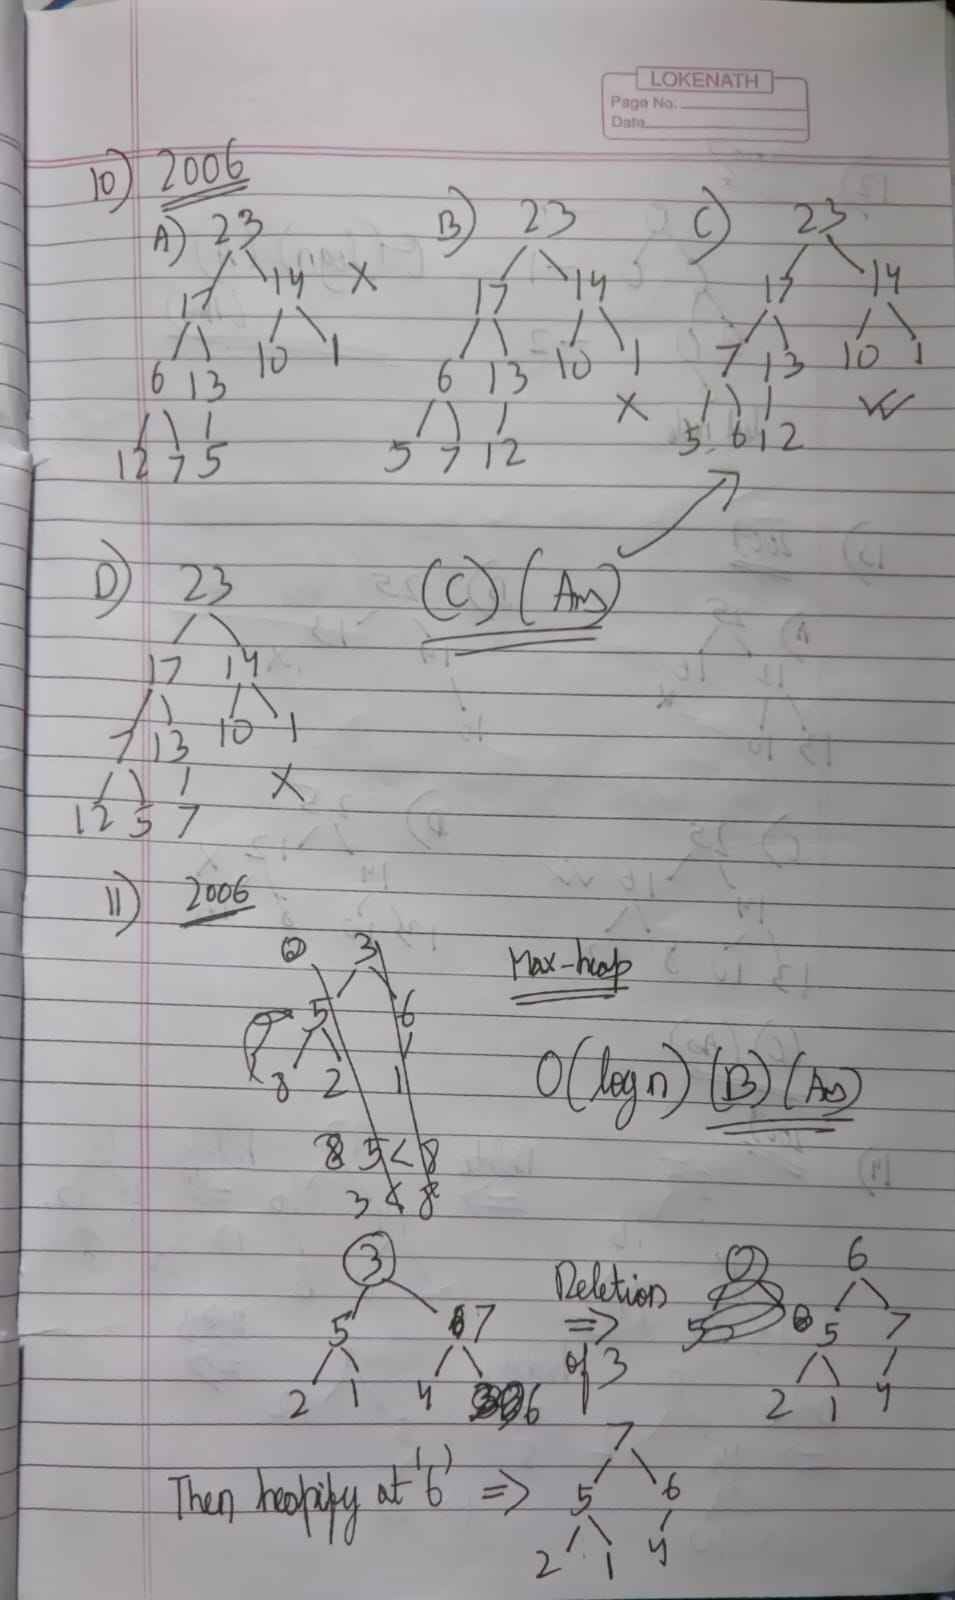 LOKENATH
Page No.
Date
10) 2006
A) 23
17 14 X
6 13 10 1
12 7 5
B) 23
17 14
6 13 10 1
5 7 12 X
C) 23
17 14
7 13 10 1
5 6 12
D) 23
17 14
7 13 10 1
12 5 7 X
(C) (Ans)
11) 2006
3
5 6
8 2 1
5 < 8
3 < 8
Max-heap
O(log n) (B) (Ans)
3
5 7
2 1 4 6
Deletion
=>
of 3
6
5 7
2 1 4
Then heapify at '6' =>
7
5 6
2 1 4